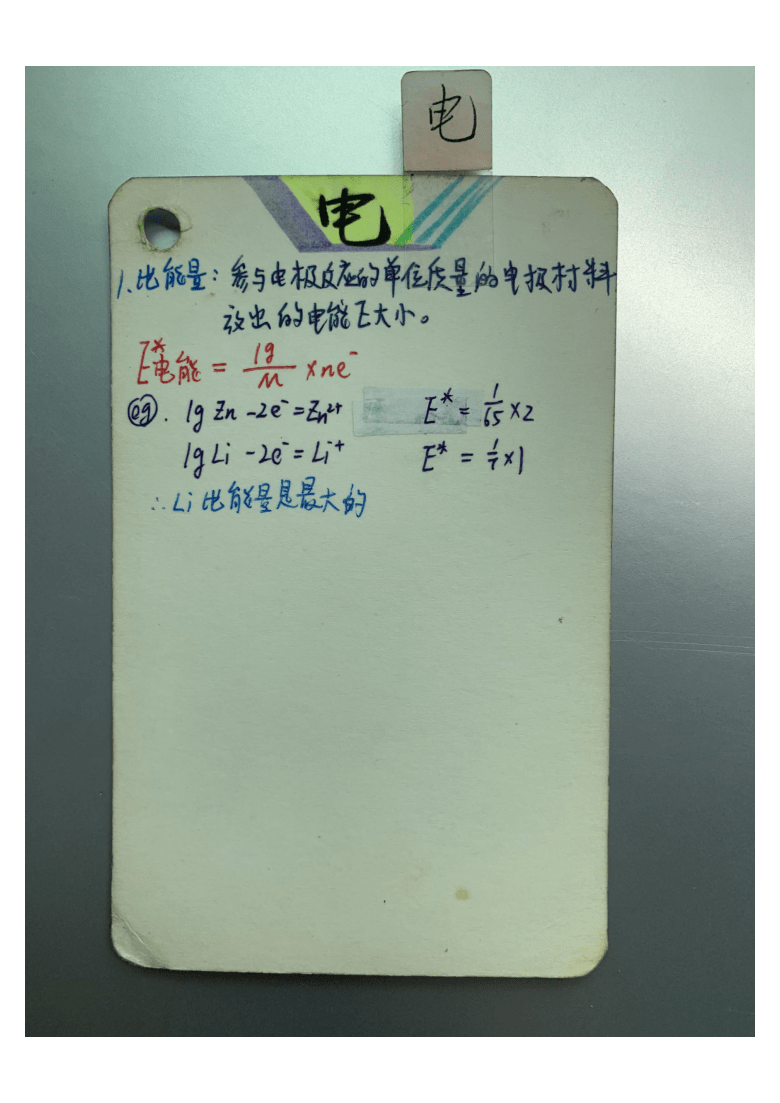 电
电
1.比能量：参与电极反应的单位质量的电极材料
放出的电能E大小。
E*电能 = 1g/M ×ne⁻
eg. 1g Zn -2e⁻=Zn²⁺ E* = 1/65 ×2
1g Li -2e⁻= Li⁺ E* = 1/7 ×1
∴Li 比能量是最大的